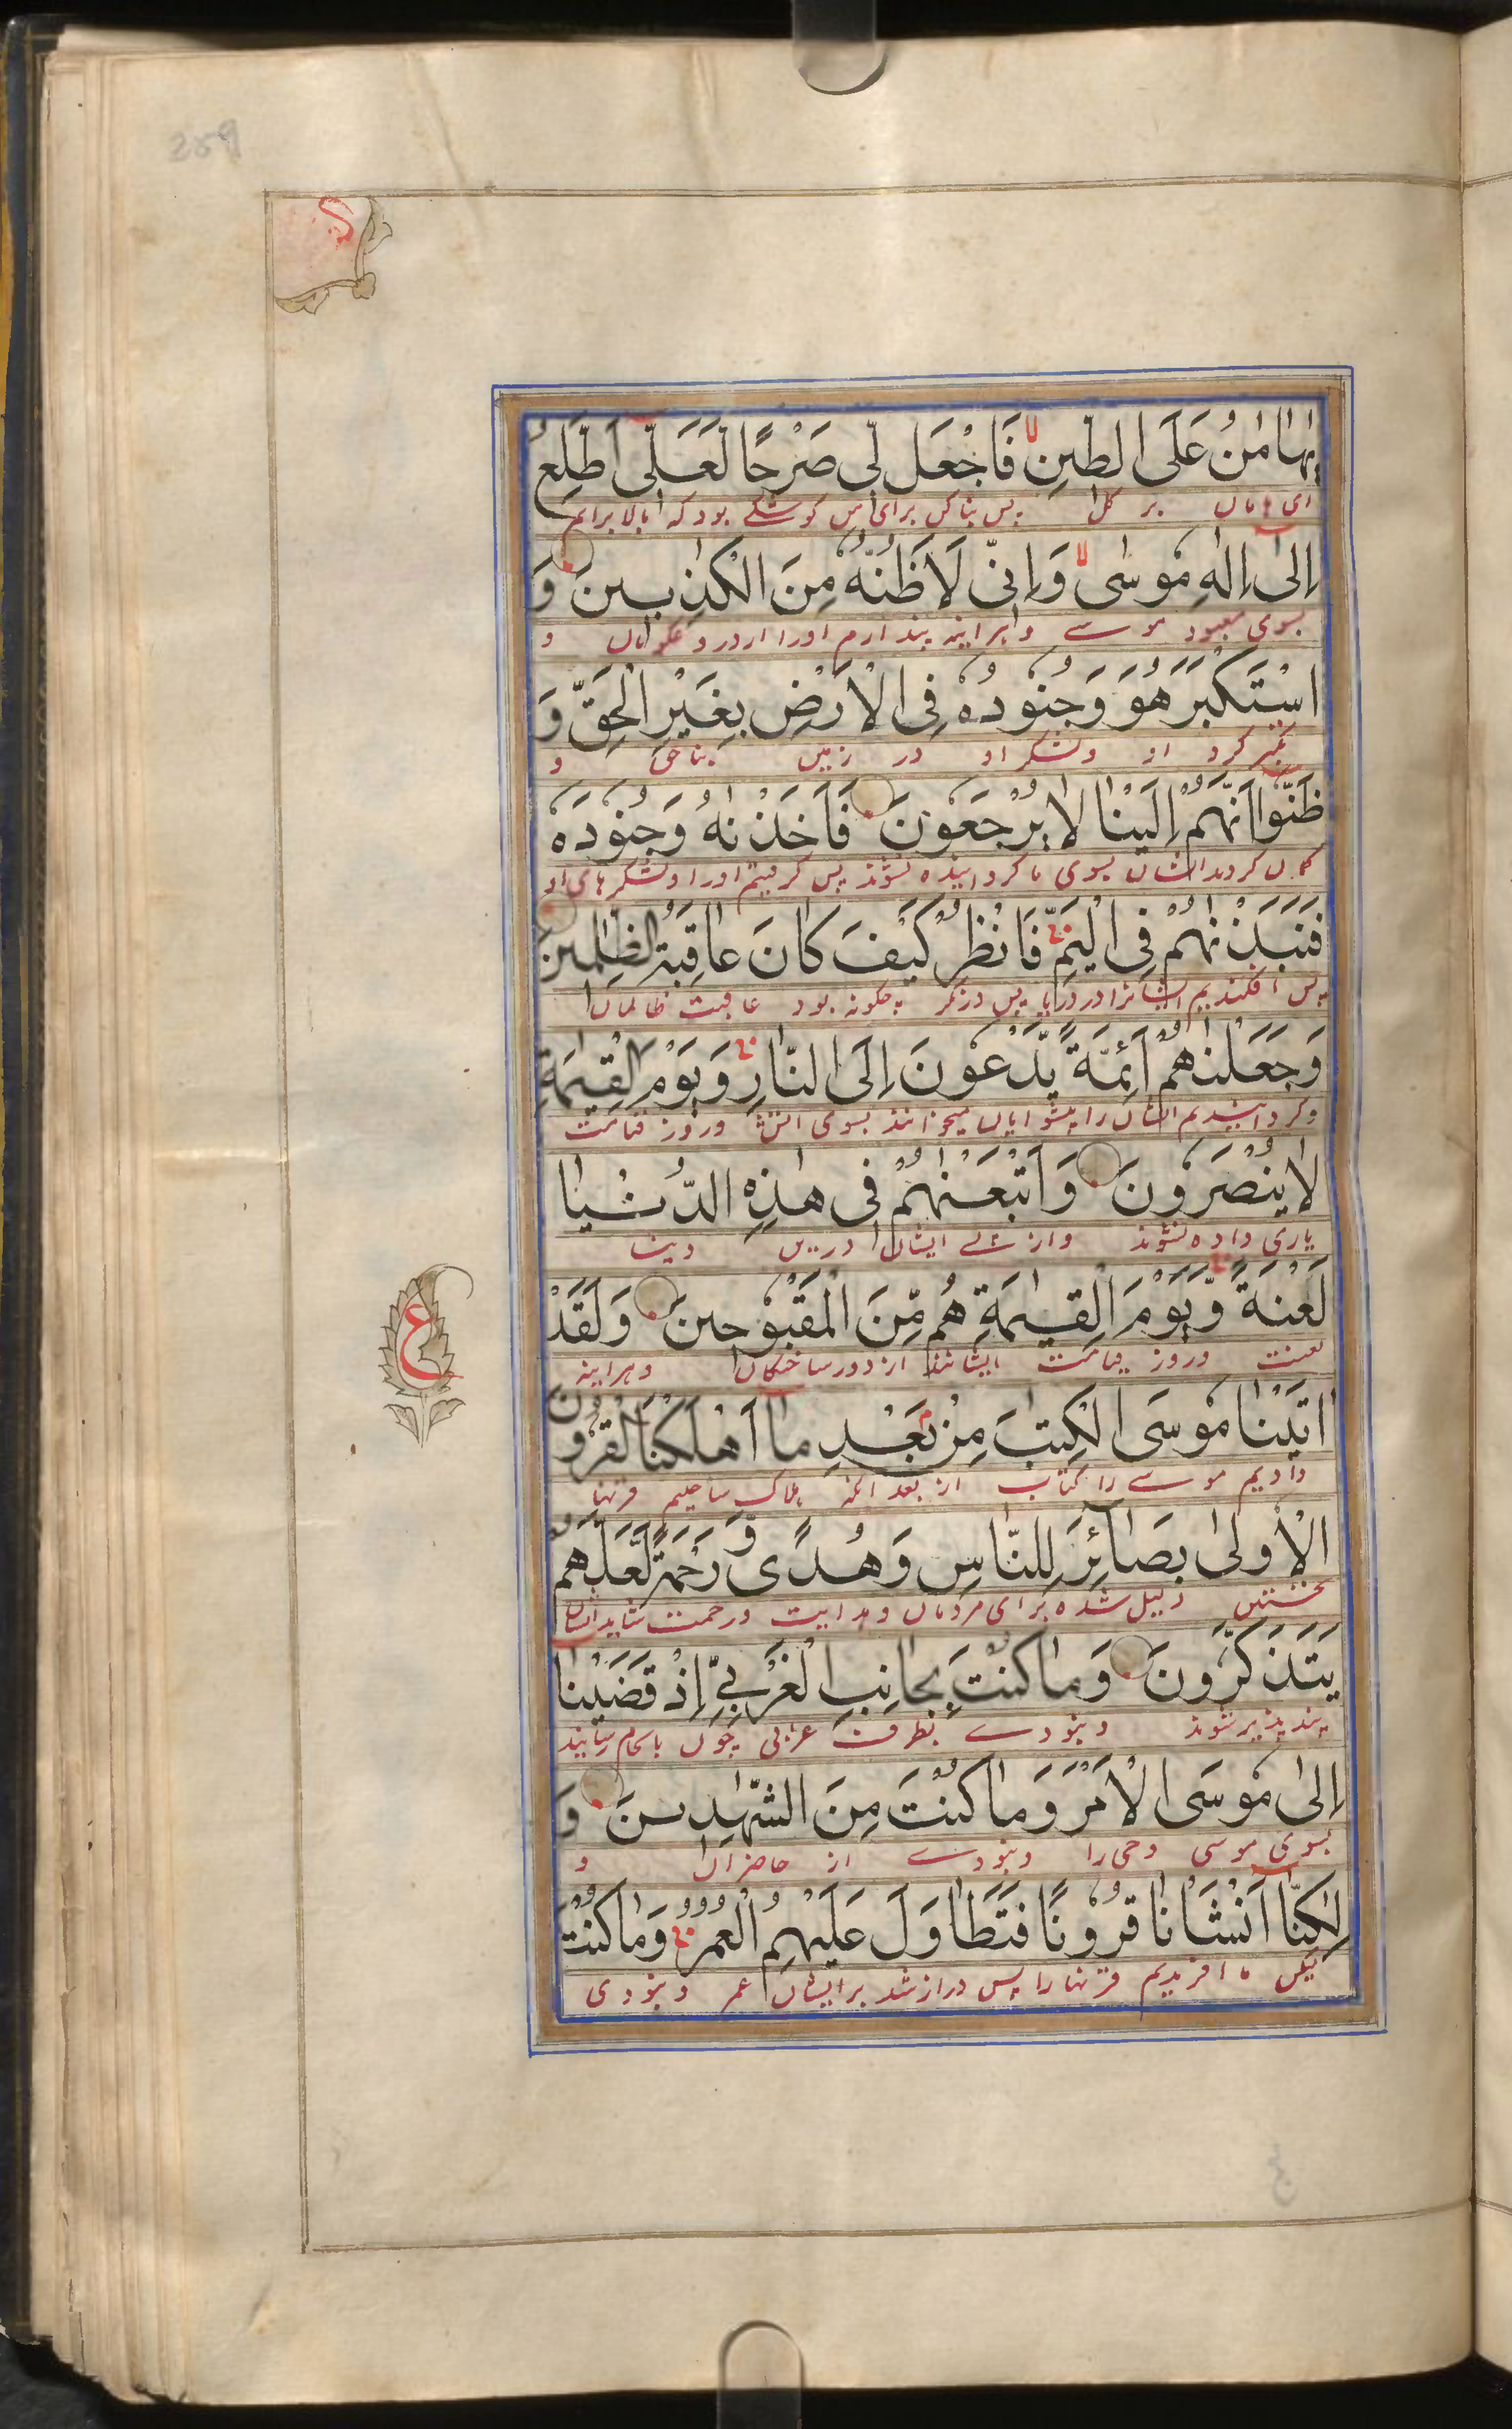 259
یٰهَامٰنُ عَلَى الطِّیْنِ ۙ فَاجْعَلْ لِّیْ صَرْحًا لَّعَلِّیْ اَطَّلِعُ
ای هامان بر گل پس بنا کن برای من کوشکے بود که بالا برایم
اِلٰی اِلٰهِ مُوْسٰی ۙ وَاِنِّیْ لَاَظُنُّهٗ مِنَ الْكٰذِبِیْنَ وَ
بسوی معبود موسے و هراینه پندارم اورا از دروغگویان و
اسْتَكْبَرَ هُوَ وَجُنُوْدُهٗ فِی الْاَرْضِ بِغَیْرِ الْحَقِّ وَ
تکبر کرد او و لشکر او در زمین بناحق و
ظَنُّوْا اَنَّهُمْ اِلَیْنَا لَا یُرْجَعُوْنَ فَاَخَذْنٰهُ وَجُنُوْدَهٗ
گمان کردند ایشان بسوی ما گردانیده نشوند پس گرفتیم اورا و لشکرهای او
فَنَبَذْنٰهُمْ فِی الْیَمِّ ۚ فَانْظُرْ كَیْفَ كَانَ عَاقِبَةُ الظّٰلِمِیْنَ
پس افکندیم ایشانرا در دریا پس درنگر چگونه بود عاقبت ظالمان
وَجَعَلْنٰهُمْ اَئِمَّةً یَّدْعُوْنَ اِلَی النَّارِ ۚ وَیَوْمَ الْقِیٰمَةِ
و گردانیدیم ایشان را پیشوایان میخوانند بسوی اتش و روز قیامت
لَا یُنْصَرُوْنَ وَاَتْبَعْنٰهُمْ فِیْ هٰذِهِ الدُّنْیَا
یاری داده نشوند و از پے ایشان درین دنیا
لَعْنَةً ۚ وَّیَوْمَ الْقِیٰمَةِ هُمْ مِّنَ الْمَقْبُوْحِیْنَ وَلَقَدْ
لعنت و روز قیامت ایشانند از دور ساختگان و هراینه
ع
اٰتَیْنَا مُوْسَی الْكِتٰبَ مِنْۢ بَعْدِ مَا اَهْلَكْنَا الْقُرُوْنَ
دادیم موسے را کتاب از بعد انکه هلاک ساختیم قرنها
الْاُوْلٰی بَصَآئِرَ لِلنَّاسِ وَهُدًی وَّ رَحْمَةً لَّعَلَّهُمْ
نخستین دلیل شده برای مردمان و هدایت و رحمت شاید ایشان
یَتَذَكَّرُوْنَ وَمَا كُنْتَ بِجَانِبِ الْغَرْبِیِّ اِذْ قَضَیْنَا
پند پذیر شوند و نبودے بطرف غربی چون بانجام رسانیدیم
اِلٰی مُوْسَی الْاَمْرَ وَمَا كُنْتَ مِنَ الشّٰهِدِیْنَ وَ
بسوی موسی وحی را و نبودے از حاضران و
لٰكِنَّا اَنْشَاْنَا قُرُوْنًا فَتَطَاوَلَ عَلَیْهِمُ الْعُمُرُ ۚ وَمَا كُنْتَ
لیکن ما افریدیم قرنها را پس دراز شد بر ایشان عمر و نبودی